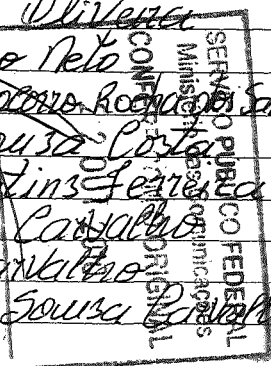 Oliveira
o Neto
ocorro Rocha dos Sa
ousa Costa
tins Ferreira
Carvalho
arvalho
Sousa Carvalh
SERVIÇO PUBLICO FEDERAL
Ministério das Comunicações
CONFERE COM O ORIGINAL
OUT